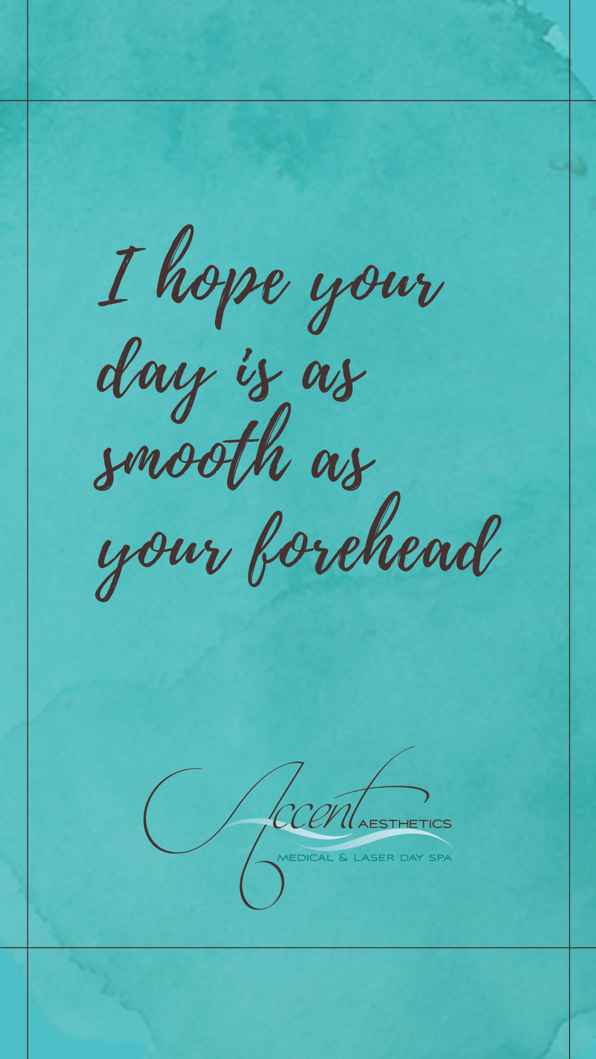 I hope your
day is as
smooth as
your forehead
Accent AESTHETICS
MEDICAL & LASER DAY SPA